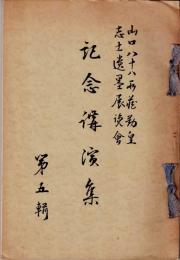 山口八十八所蔵勤皇
志士遺墨展覧会
記念講演集
第五輯